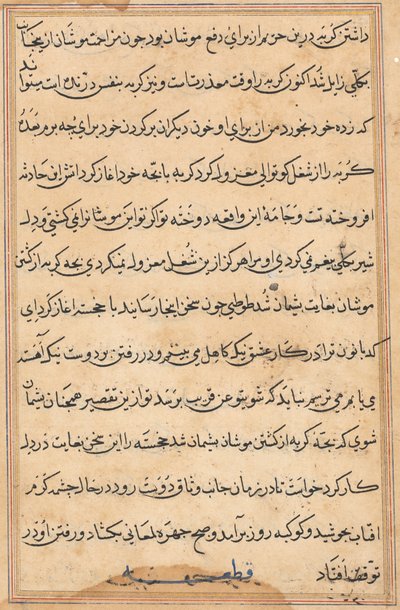 داشتن گربه درین حریم از برای دفع موشان بود چون مزاحمت موشان از اینجا
بکلی زایل شد اکنون گربه را وقت معذرتست و نیز گربه بنفس درنده است
که زده خود نخورد من از برای او خون دیگران بر گردن خود برای چه برم بعده
گربه را از شغل کوتوالی معزول کرد گربه با بچه خود اغاز کرد اتش این حادثه
افروخته تست و جامهٔ این واقعه دوخته تو اگر تو این موشانرا نمی کشتی و دل
شیر بکلی بیغم نمی کردی او مرا هرگز ازین شغل معزول نمیکردی بچه گربه از کشتن
موشان بغایت پشیمان شد طوطی چون سخن اینجا رسانید با خجسته اغاز کرد ای
که بانو ترا در کار عشق نیک کاهل می بینم و در رفتن بر دوست نیک آهسته
می یابم می ترسم نباید که شوی تو عن قریب برسد تو ازین تقصیر همچنان پشیمان
شوی که بچهٔ گربه از کشتن موشان پشیمان شد خجسته را این سخن بغایت در دل
کار کرد خواست تا در زمان جانب وثاق دوست رود در حال چشمه گرم
افتاب بجوشید و کوکبه روز برآمد و صبح چهره لمعانی بکشاد و رفتن او در
توقف افتاد قطعه